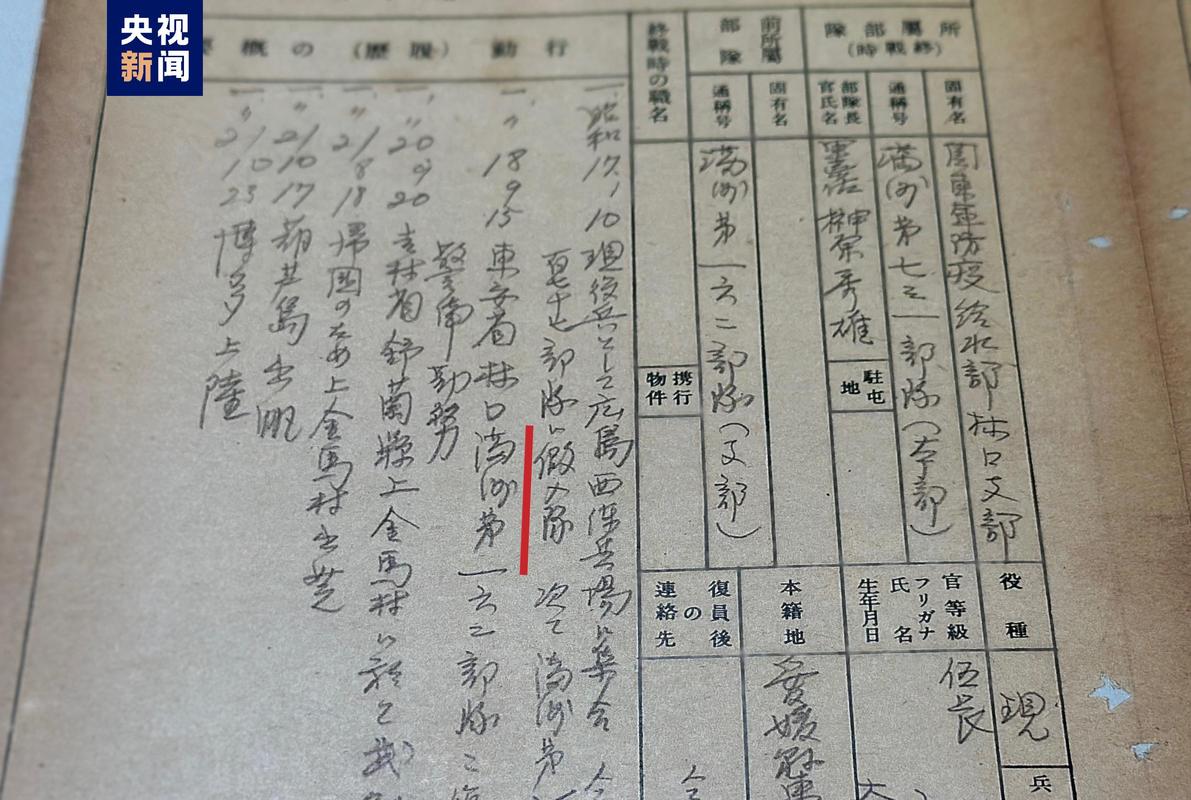 央视
新闻
所屬部隊
(終戰時)
固有名
関東軍防疫給水部林口支部
通稱号
満洲第七三一部隊(本部)
部隊長
官氏名
榊原秀雄
駐屯
地
前所屬
部隊
固有名
通稱号
満洲第一六二部隊(支部)
終戰時の職名
携行
物件
行動(履歷)の概要
一、昭和17.1.10現役兵として広島西練兵場に集合
部隊に假入隊 次て満洲第
一、〃18 9 15東安省林口満洲第一六二部隊ニ
警備勤務
一、〃20 9 20吉林省舒蘭縣上金馬村に於て武
一、〃21 8 18帰国のため上金馬村出発
一、〃21 10 17葫芦島出帆
一、〃21 10 23博多上陸
役種
現
兵
官等級
フリガナ
氏名
生年月日
伍長
本籍地
愛媛縣
復員後
の
連絡先